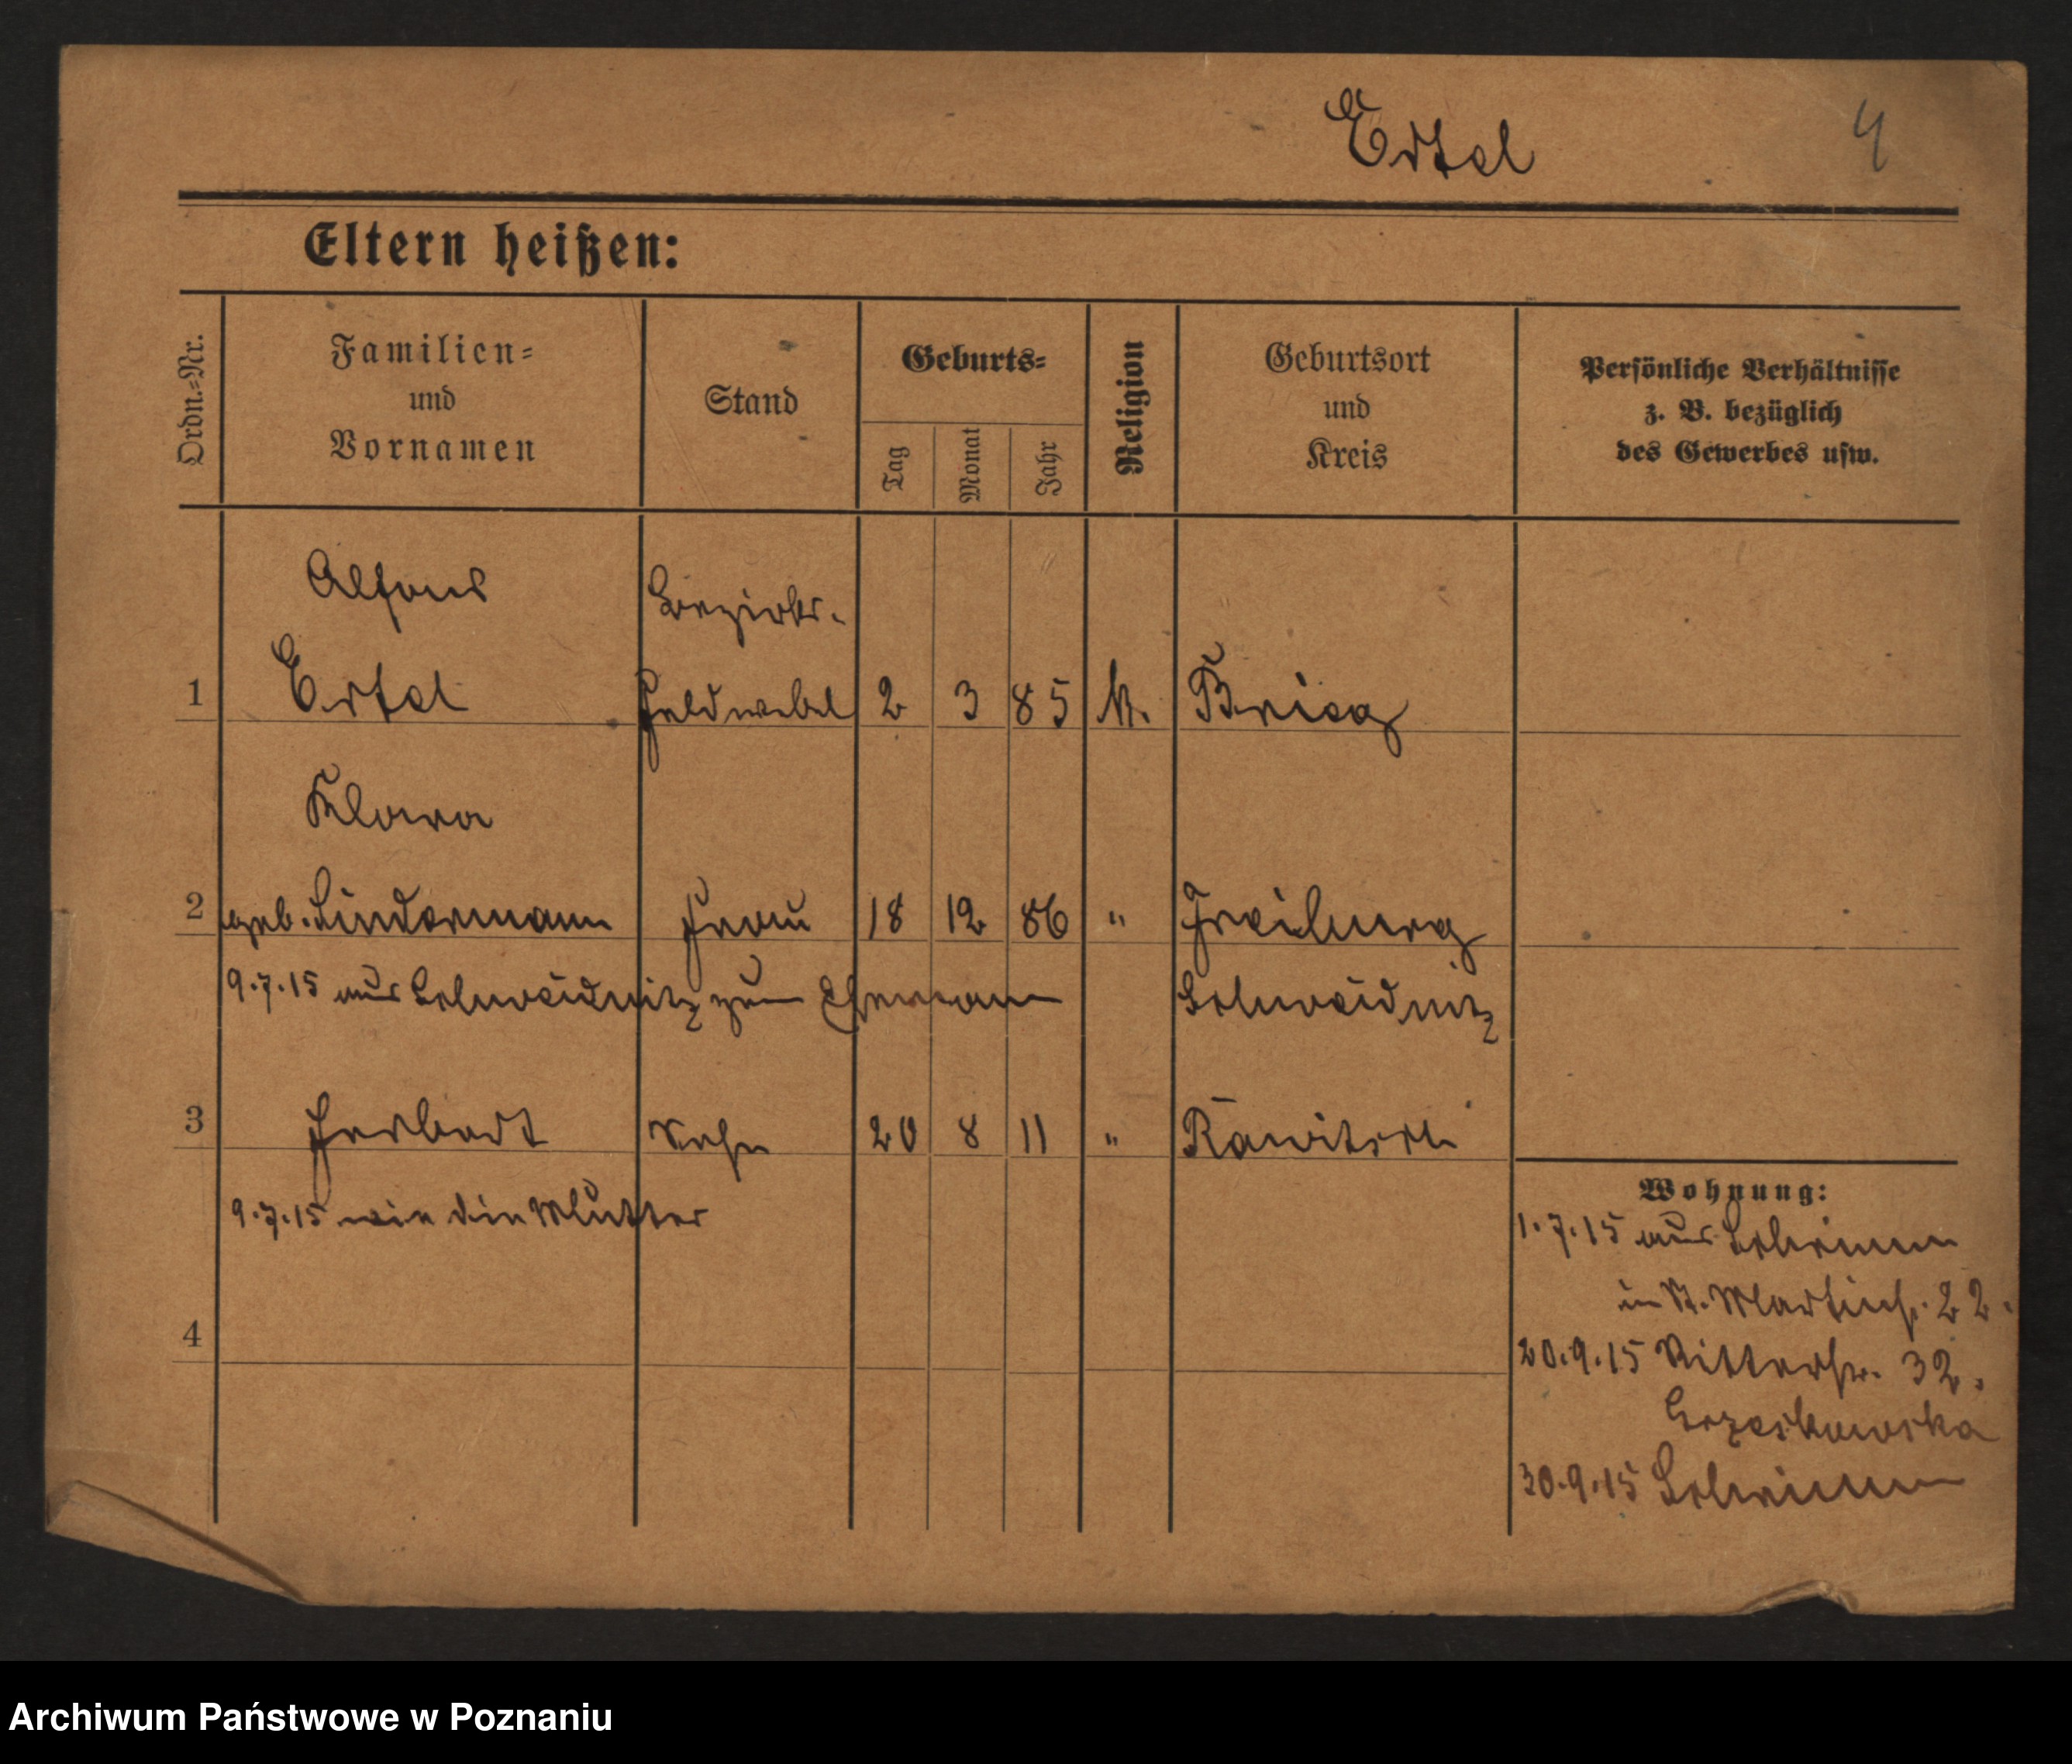 Ertel
4
Eltern heißen:
Ordn.=Nr.
Familien=
und
Vornamen
Stand
Geburts=
Tag
Monat
Jahr
Religion
Geburtsort
und
Kreis
Persönliche Verhältnisse
z. B. bezüglich
des Gewerbes usw.
Alfons
Bezirks-
1 Ertel Feldwebel 2 3 85 K. Brieg
Klara
2 geb. Lindermann Frau 18 12 86 " Freiburg
9.7.15 aus Schweidnitz zum Ehemann Schweidnitz
3 Herbert Sohn 20 8 11 " Rawitsch
9.7.15 wie die Mutter
4
Wohnung:
1.7.15 aus Schrimm
in St. Martinstr. 22.
20.9.15 Ritterstr. 32.
30.9.15 Schrimm
Archiwum Państwowe w Poznaniu